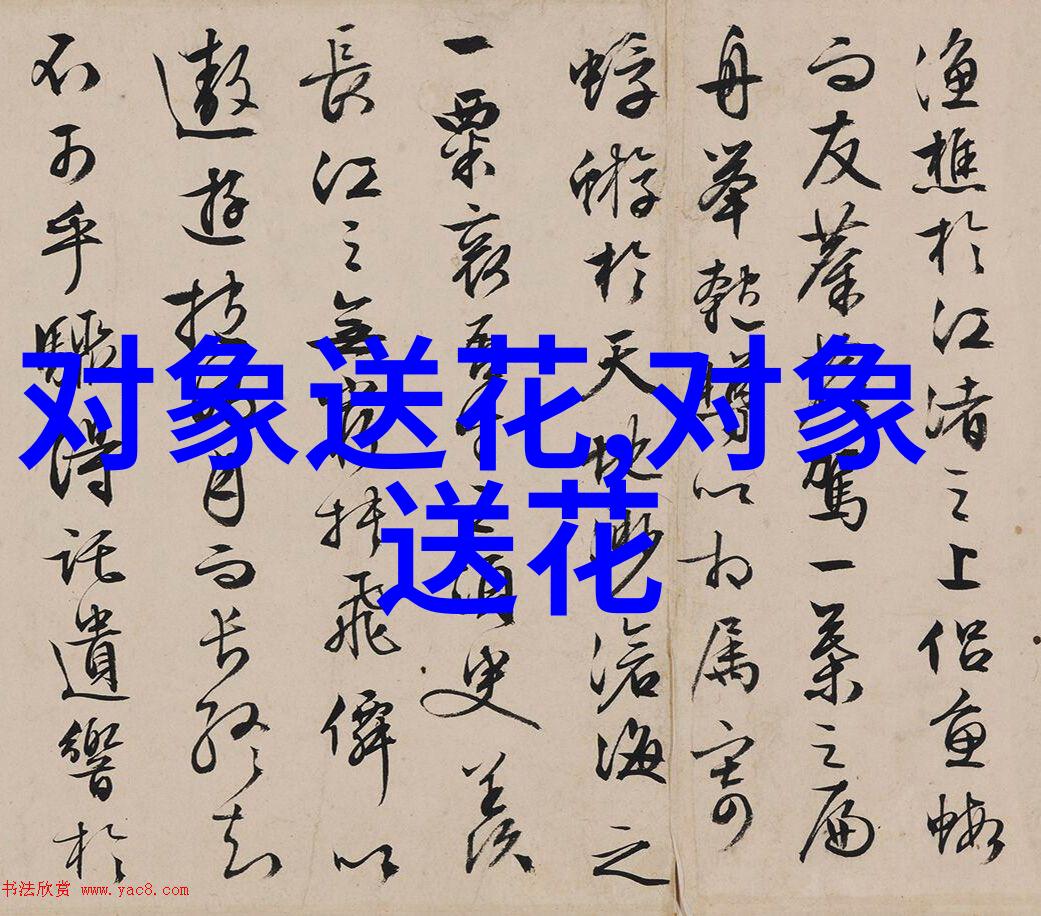 渔樵於江渚之上侣鱼蝦
而友麋鹿駕一葉之扁
舟举匏樽以相属寄
蜉蝣於天地渺滄海之
一粟哀吾生之須臾羡
長江之無窮挟飛僊以
遨遊抱明月而长终知
不可乎驟得託遺響於
对象送花,对象
送花
书法欣赏 www.yac8.com